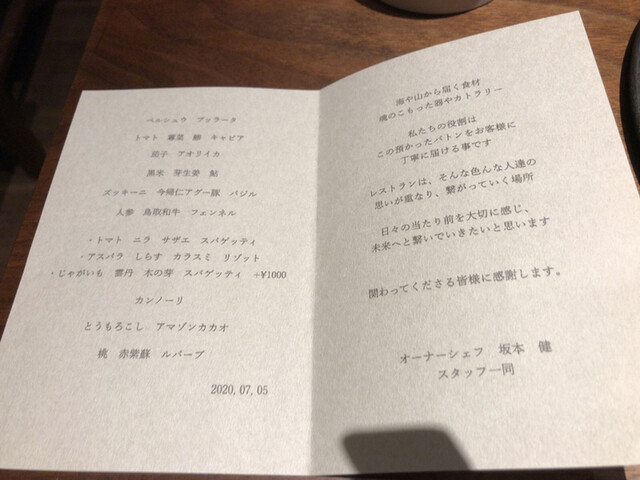 ペルシュウ ブッラータ
トマト 蓴菜 鯵 キャビア
茄子 アオリイカ
黒米 芽生姜 鮎
ズッキーニ 今帰仁アグー豚 バジル
人参 鳥取和牛 フェンネル
・トマト ニラ サザエ スパゲッティ
・アスパラ しらす カラスミ リゾット
・じゃがいも 雲丹 木の芽 スパゲッティ +¥1000
カンノーリ
とうもろこし アマゾンカカオ
桃 赤紫蘇 ルバーブ
2020,07,05
海や山から届く食材
魂のこもった器やカトラリー
私たちの役割は
この預かったバトンをお客様に
丁寧に届ける事です
レストランは、そんな色んな人達の
思いが重なり、繋がっていく場所
日々の当たり前を大切に感じ、
未来へと繋いでいきたいと思います
関わってくださる皆様に感謝します。
オーナーシェフ 坂本 健
スタッフ一同